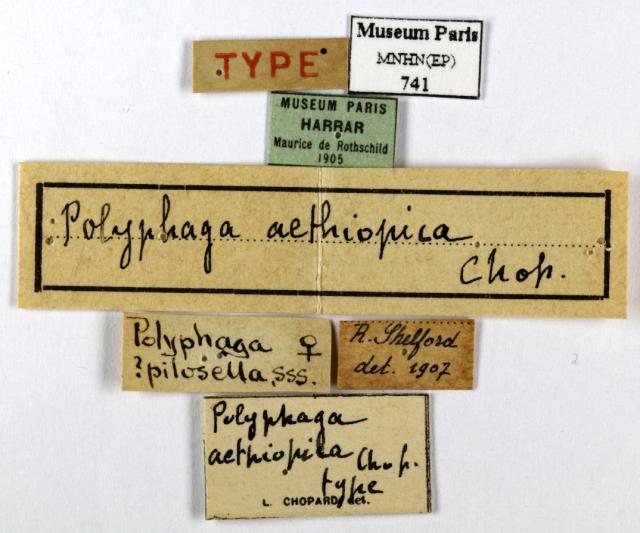 TYPE
Museum Paris
MNHN(EP)
741
MUSEUM PARIS
HARRAR
Maurice de Rothschild
1905
Polyphaga aethiopica
Chop.
Polyphaga ♀
?pilosella, sss.
R. Shelford
det. 1907
Polyphaga
aethiopica Chop.
type
L. CHOPARD det.